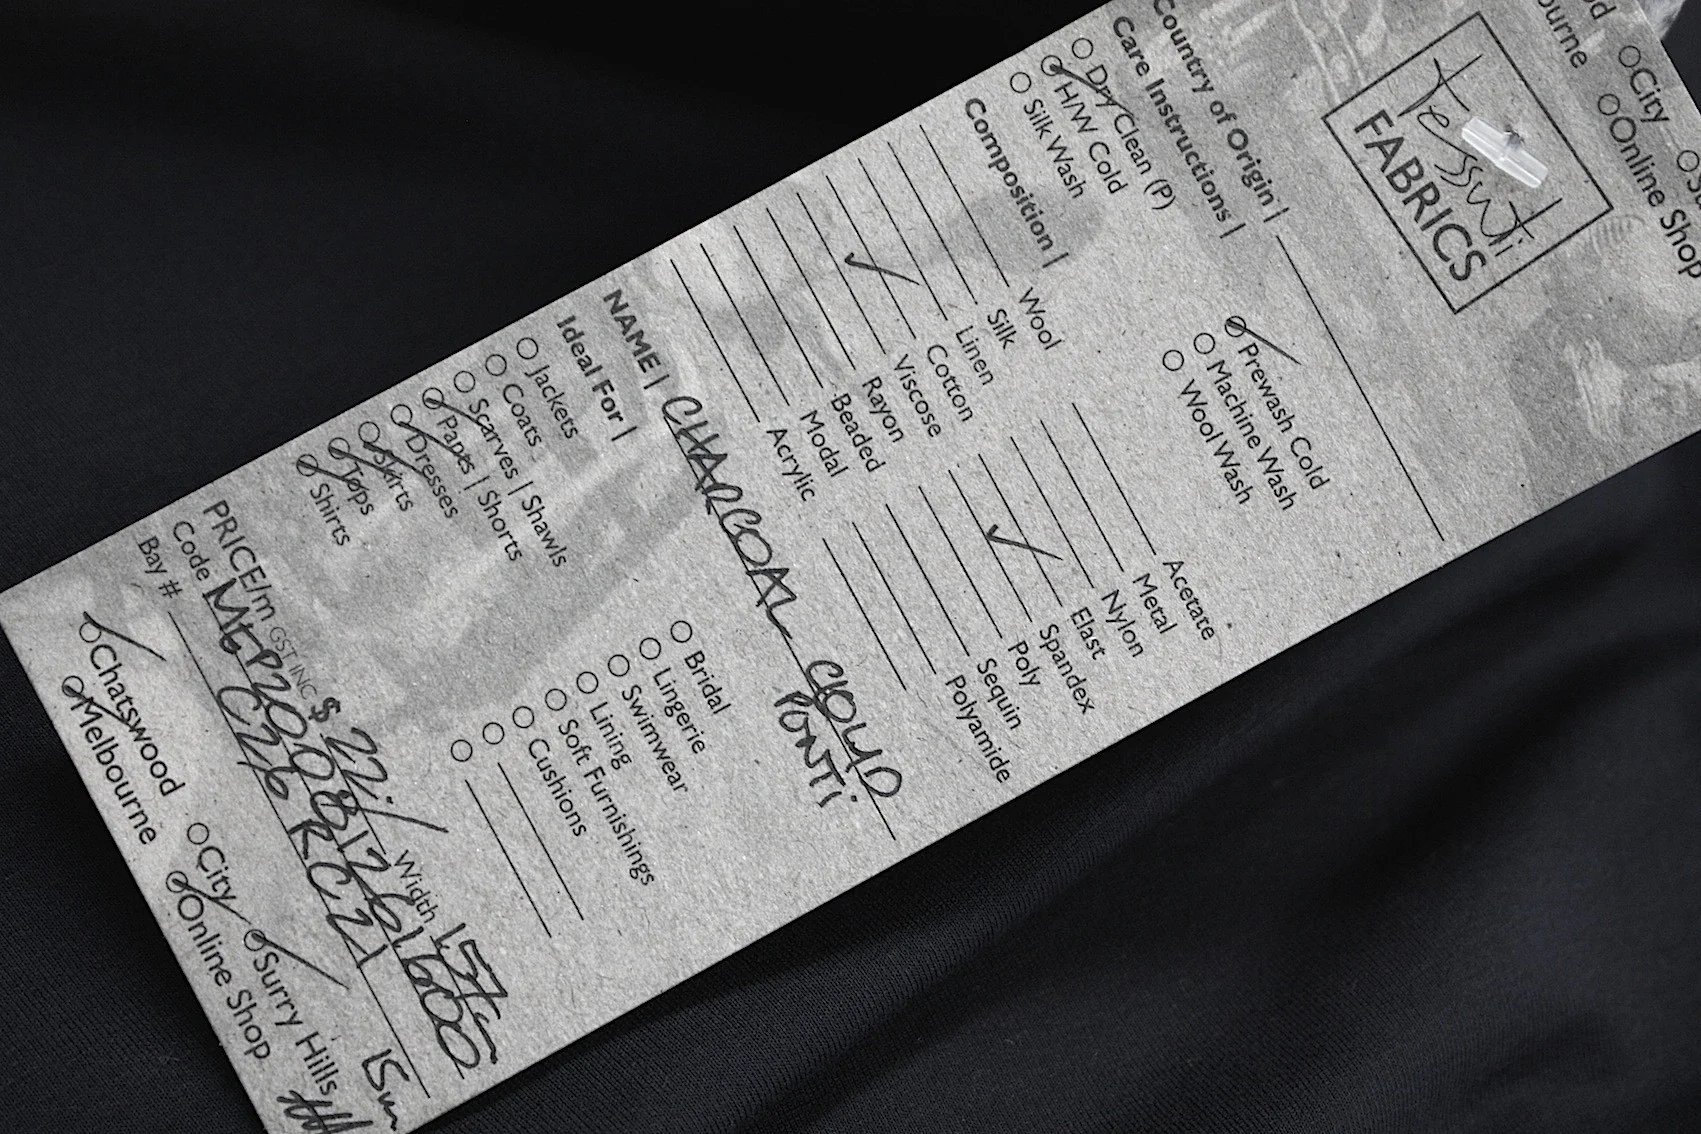 Tessuti
FABRICS
City
Online Shop
Country of Origin |
Care Instructions |
Dry Clean (P)
HW Cold
Silk Wash
Prewash Cold
Machine Wash
Wool Wash
Composition |
Wool
Silk
Linen
Cotton
Viscose
Rayon
Beaded
Modal
Acrylic
Acetate
Metal
Nylon
Elast
Spandex
Poly
Sequin
Polyamide
NAME | CHARCOAL SOLID
PONTI
Ideal For |
Jackets
Coats
Scarves | Shawls
Pants | Shorts
Dresses
Skirts
Tops
Shirts
Bridal
Lingerie
Swimwear
Lining
Soft Furnishings
Cushions
PRICE/m GST INC $ 22/ Width
Code
Bay # C26 RC21 15m
Chatswood
City
Surry Hills
Melbourne
Online Shop